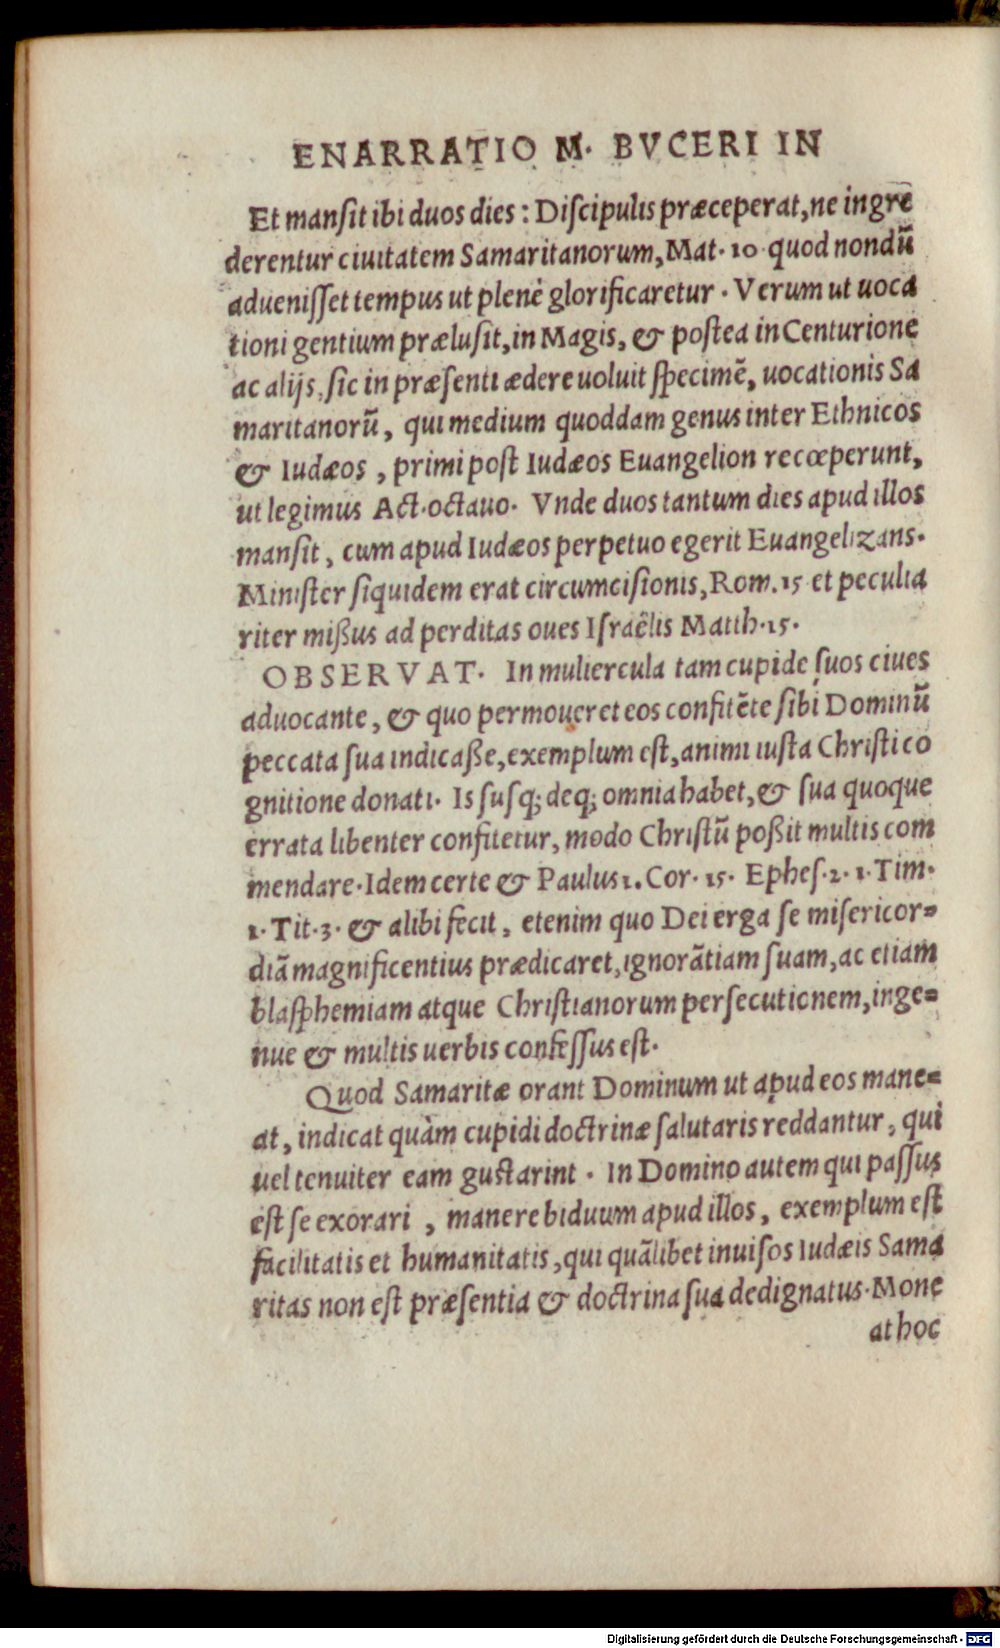 ENARRATIO M. BVCERI IN
Et manſit ibi duos dies : Diſcipulis præceperat, ne ingrē
derentur ciuitatem Samaritanorum, Mat. 10 quod nondū
adueniſſet tempus ut plenè glorificaretur . Verum ut uoca
tioni gentium præluſit, in Magis, & poſtea in Centurione
ac alijs, ſic in præſenti ædere uoluit ſpecimē, uocationis Sa
maritanorū, qui medium quoddam genus inter Ethnicos
& Iudæos , primi poſt Iudæos Euangelion recœperunt,
ut legimus Act.octauo. Vnde duos tantum dies apud illos
manſit, cum apud Iudæos perpetuo egerit Euangelizans.
Miniſter ſiquidem erat circumciſionis, Rom. 15 et peculia
riter mißus ad perditas oues Iſraêlis Matth.15.
OBSERVAT. In muliercula tam cupide ſuos ciues
aduocante, & quo permoueret eos confitēte ſibi Dominū
peccata ſua indicaße, exemplum eſt, animi iuſta Chriſti co
gnitione donati. Is ſuſq; deq; omnia habet, & ſua quoque
errata libenter confitetur, modo Chriſtū poßit multis com
mendare. Idem certe & Paulus 1. Cor. 15. Epheſ. 2. 1. Tim.
1. Tit. 3. & alibi fecit , etenim quo Dei erga ſe miſericor=
diā magnificentius prædicaret, ignorātiam ſuam, ac etiam
blaſphemiam atque Chriſtianorum perſecutionem, inge=
nue & multis uerbis confeſſus eſt.
Quod Samaritæ orant Dominum ut apud eos mane=
at, indicat quàm cupidi doctrinæ ſalutaris reddantur, qui
uel tenuiter eam guſtarint . In Domino autem qui paſſus
eſt ſe exorari , manere biduum apud illos, exemplum eſt
facilitatis et humanitatis, qui quālibet inuiſos Iudæis Sama
ritas non eſt præſentia & doctrina ſua dedignatus. Mone
at hoc
Digitalisierung gefördert durch die Deutsche Forschungsgemeinschaft - DFG